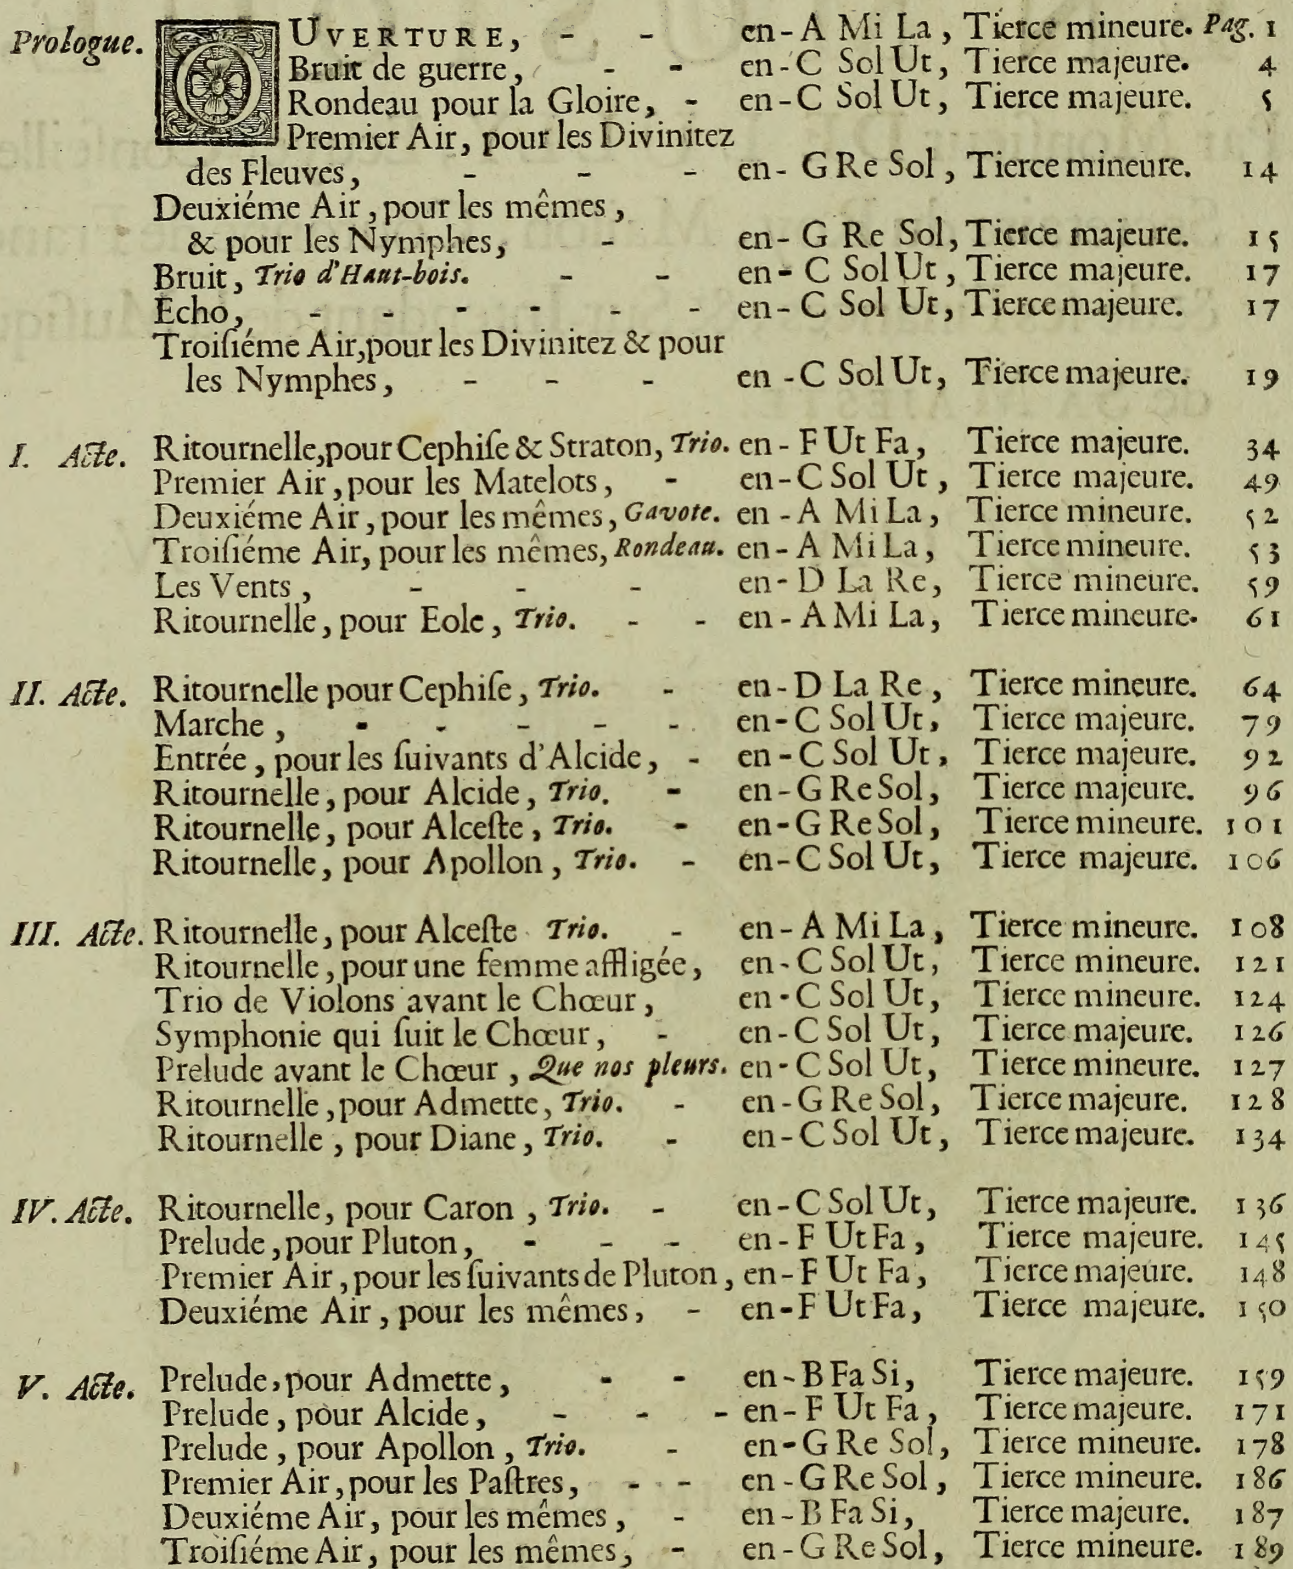 Prologue. OUVERTURE, - - en-A Mi La, Tierce mineure. Pag. 1
Bruit de guerre, - - en-C Sol Ut, Tierce majeure. 4
Rondeau pour la Gloire, - en-C Sol Ut, Tierce majeure. 5
Premier Air, pour les Divinitez
des Fleuves, - - - en- G Re Sol, Tierce mineure. 14
Deuxiéme Air, pour les mêmes,
& pour les Nymphes, - en- G Re Sol, Tierce majeure. 15
Bruit, Trio d'Haut-bois. - - en- C Sol Ut, Tierce majeure. 17
Echo, - - - - - - en- C Sol Ut, Tierce majeure. 17
Troiſiéme Air, pour les Divinitez & pour
les Nymphes, - - - en -C Sol Ut, Tierce majeure. 19
I. Acte. Ritournelle, pour Cephiſe & Straton, Trio. en- F Ut Fa, Tierce majeure. 34
Premier Air, pour les Matelots, - en-C Sol Ut, Tierce majeure. 49
Deuxiéme Air, pour les mêmes, Gavote. en -A Mi La, Tierce mineure. 52
Troiſiéme Air, pour les mêmes, Rondeau. en- A Mi La, Tierce mineure. 53
Les Vents, - - - en- D La Re, Tierce mineure. 59
Ritournelle, pour Eole, Trio. - - en- A Mi La, Tierce mineure. 61
II. Acte. Ritournelle pour Cephiſe, Trio. - en-D La Re, Tierce mineure. 64
Marche, - - - - - en-C Sol Ut, Tierce majeure. 79
Entrée, pour les ſuivants d'Alcide, - en-C Sol Ut, Tierce majeure. 92
Ritournelle, pour Alcide, Trio. - en-G Re Sol, Tierce majeure. 96
Ritournelle, pour Alceſte, Trio. - en-G Re Sol, Tierce mineure. 101
Ritournelle, pour Apollon, Trio. - en-C Sol Ut, Tierce majeure. 106
III. Acte. Ritournelle, pour Alceſte Trio. - en- A Mi La, Tierce mineure. 108
Ritournelle, pour une femme affligée, en-C Sol Ut, Tierce mineure. 121
Trio de Violons avant le Chœur, en-C Sol Ut, Tierce mineure. 124
Symphonie qui ſuit le Chœur, - en-C Sol Ut, Tierce majeure. 126
Prelude avant le Chœur, Que nos pleurs. en-C Sol Ut, Tierce mineure. 127
Ritournelle, pour Admette, Trio. - en-G Re Sol, Tierce majeure. 128
Ritournelle, pour Diane, Trio. - en-C Sol Ut, Tierce majeure. 134
IV. Acte. Ritournelle, pour Caron, Trio. - en-C Sol Ut, Tierce majeure. 136
Prelude, pour Pluton, - - - en-F Ut Fa, Tierce majeure. 145
Premier Air, pour les ſuivants de Pluton, en-F Ut Fa, Tierce majeure. 148
Deuxiéme Air, pour les mêmes, - en-F Ut Fa, Tierce majeure. 150
V. Acte. Prelude, pour Admette, - - en-B Fa Si, Tierce majeure. 159
Prelude, pour Alcide, - - - en-F Ut Fa, Tierce majeure. 171
Prelude, pour Apollon, Trio. - en-G Re Sol, Tierce mineure. 178
Premier Air, pour les Paſtres, - - en-G Re Sol, Tierce mineure. 186
Deuxiéme Air, pour les mêmes, - en-B Fa Si, Tierce majeure. 187
Troiſiéme Air, pour les mêmes, - en-G Re Sol, Tierce mineure. 189